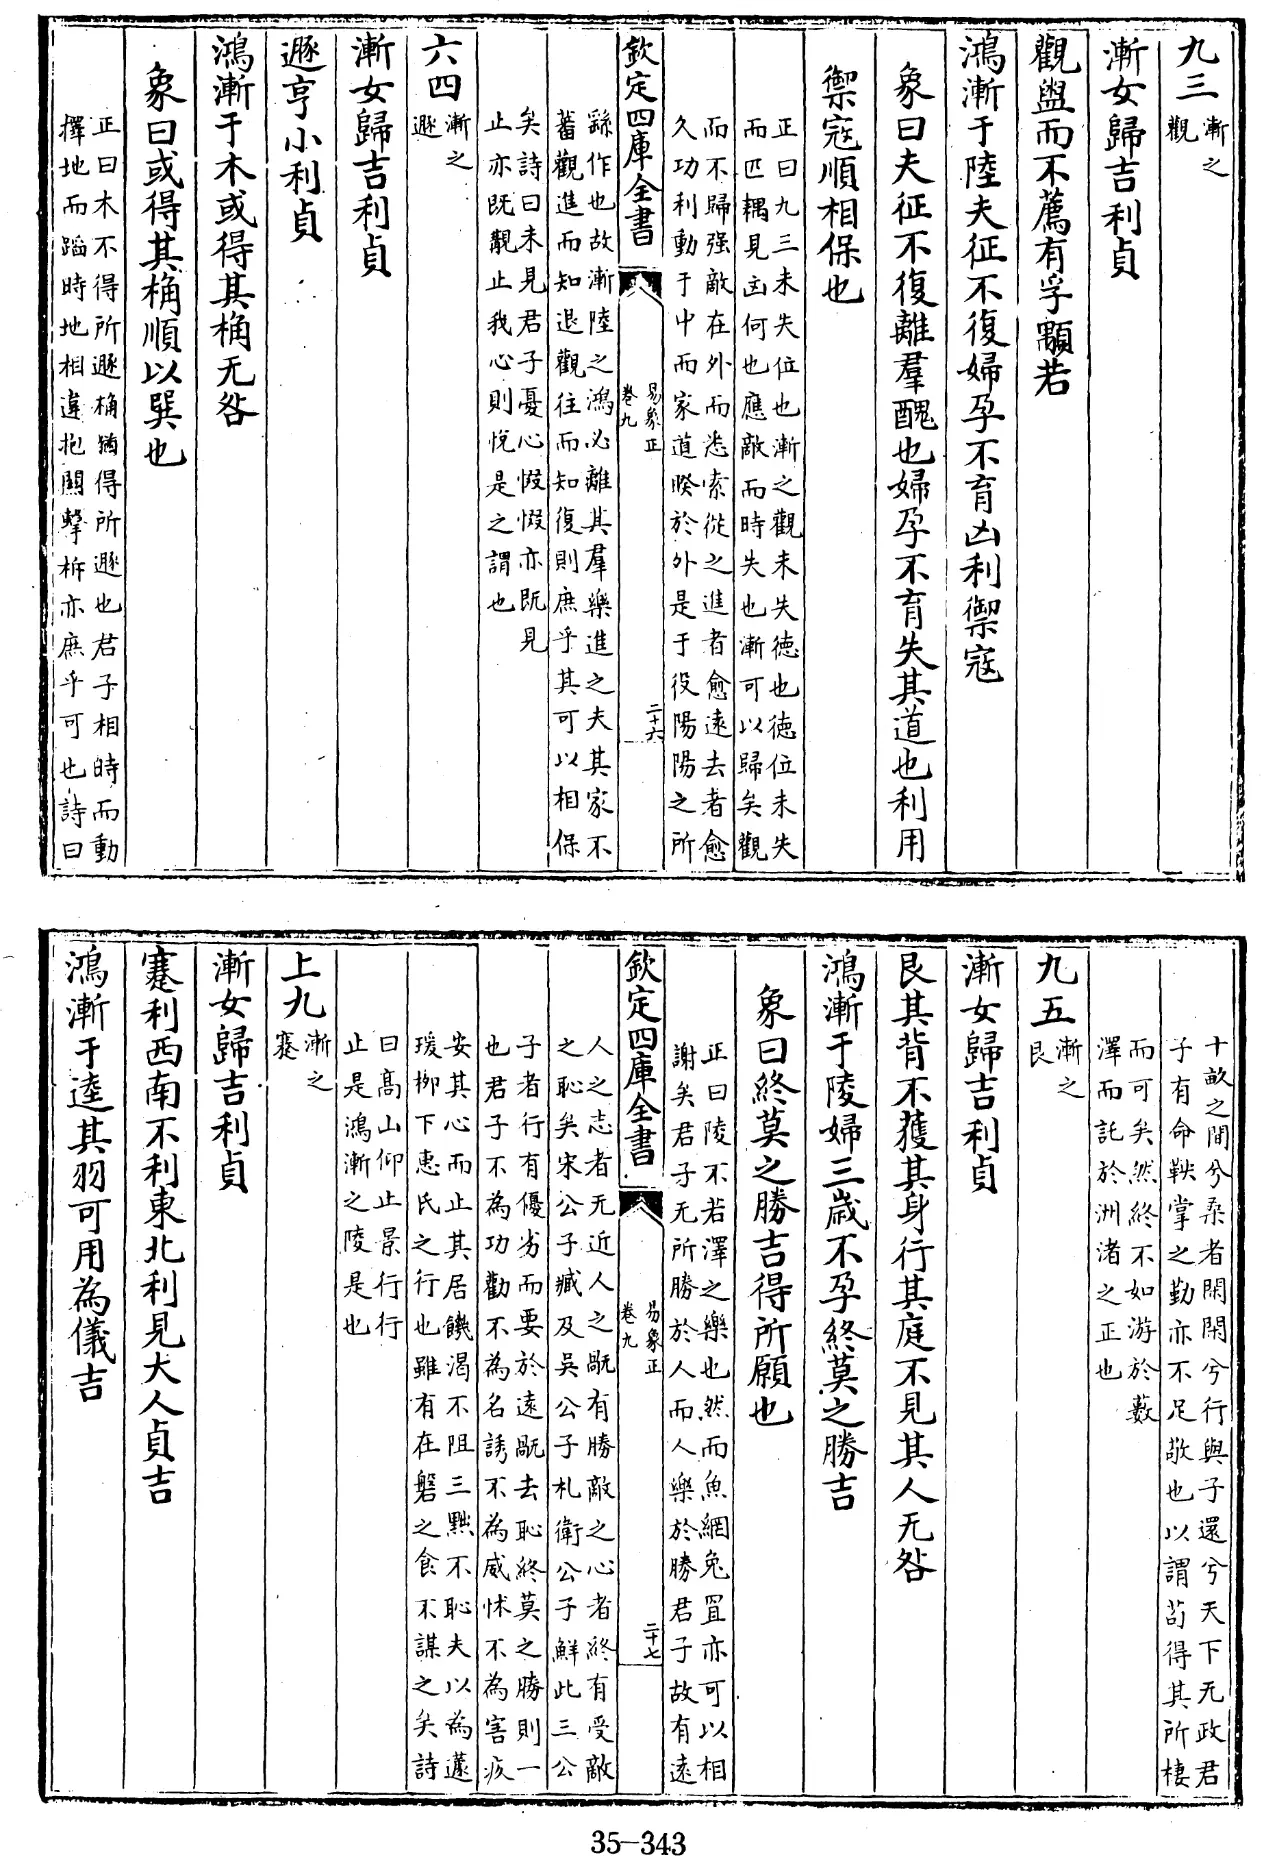 九三漸之
觀
漸女歸吉利貞
觀盥而不薦有孚顒若
鴻漸于陸夫征不復婦孕不育凶利禦寇
象曰夫征不復離羣醜也婦孕不育失其道也利用
禦寇順相保也
正曰九三未失位也漸之觀未失德也德位未失
而匹耦見凶何也應敵而時失也漸可以歸矣觀
而不歸强敵在外而悉索從之進者愈遠去者愈
久功利動于中而家道暌於外是于役陽陽之所
欽定四庫全書
易象正
卷九
二十六
繇作也故漸陸之鴻必離其羣樂進之夫其家不
蓄觀進而知退觀往而知復則庶乎其可以相保
矣詩曰未見君子憂心惙惙亦既見
止亦既覯止我心則悅是之謂也
六四漸之
遯
漸女歸吉利貞
遯亨小利貞
鴻漸于木或得其桷无咎
象曰或得其桷順以巽也
正曰木不得所遯桷猶得所遯也君子相時而動
擇地而蹈時地相違抱關擊柝亦庶乎可也詩曰
十畝之間兮桑者閑閑兮行與子還兮天下无政君
子有命鞅掌之勤亦不足敬也以謂茍得其所棲
而可矣然終不如游於藪
澤而託於洲渚之正也
九五漸之
艮
漸女歸吉利貞
艮其背不獲其身行其庭不見其人无咎
鴻漸于陵婦三歲不孕終莫之勝吉
象曰終莫之勝吉得所願也
正曰陵不若澤之樂也然而魚網兔罝亦可以相
謝矣君子无所勝於人而人樂於勝君子故有遠
欽定四庫全書
易象正
卷九
二十七
人之志者无近人之翫有勝敵之心者終有受敵
之恥矣宋公子臧及吳公子札衛公子鮮此三公
子者行有優劣而要於遠翫去恥終莫之勝則一
也君子不為功勸不為名誘不為威怵不為害疚
安其心而止其居饑渴不阻三黜不恥夫以為蘧
瑗栁下惠氏之行也雖有在磐之食不謀之矣詩
曰髙山仰止景行行
止是鴻漸之陵是也
上九漸之
蹇
漸女歸吉利貞
蹇利西南不利東北利見大人貞吉
鴻漸于逵其羽可用為儀吉
35-343